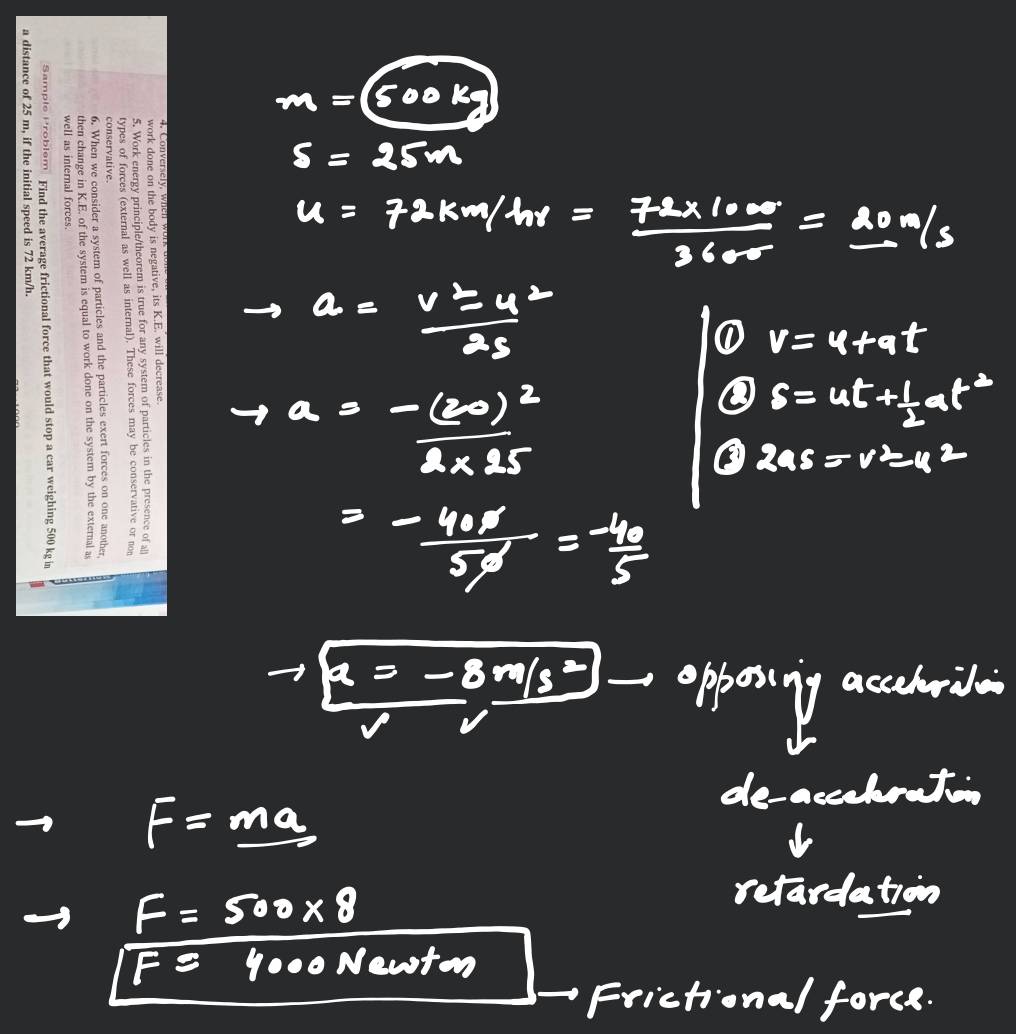 4. Conversely, when work done
work done on the body is negative, its K.E. will decrease.
5. Work energy principle/theorem is true for any system of particles in the presence of all
types of forces (external as well as internal). These forces may be conservative or non
conservative.
6. When we consider a system of particles and the particles exert forces on one another,
then change in K.E. of the system is equal to work done on the system by the external as
well as internal forces.
Sample Problem Find the average frictional force that would stop a car weighing 500 kg in
a distance of 25 m, if the initial speed is 72 km/h.
m = 500 kg
S = 25m
u = 72km/hr = 72×1000/3600 = 20 m/s
→ a = v²-u²/2s
→ a = -(20)²/2×25
= -400/50 = -40/5
→ a = -8 m/s² → opposing acceleration
↓
de-acceleration
↓
retardation
① v=u+at
② s=ut+½at²
③ 2as=v²-u²
→ F = ma
→ F = 500×8
F = 4000 Newton → Frictional force.